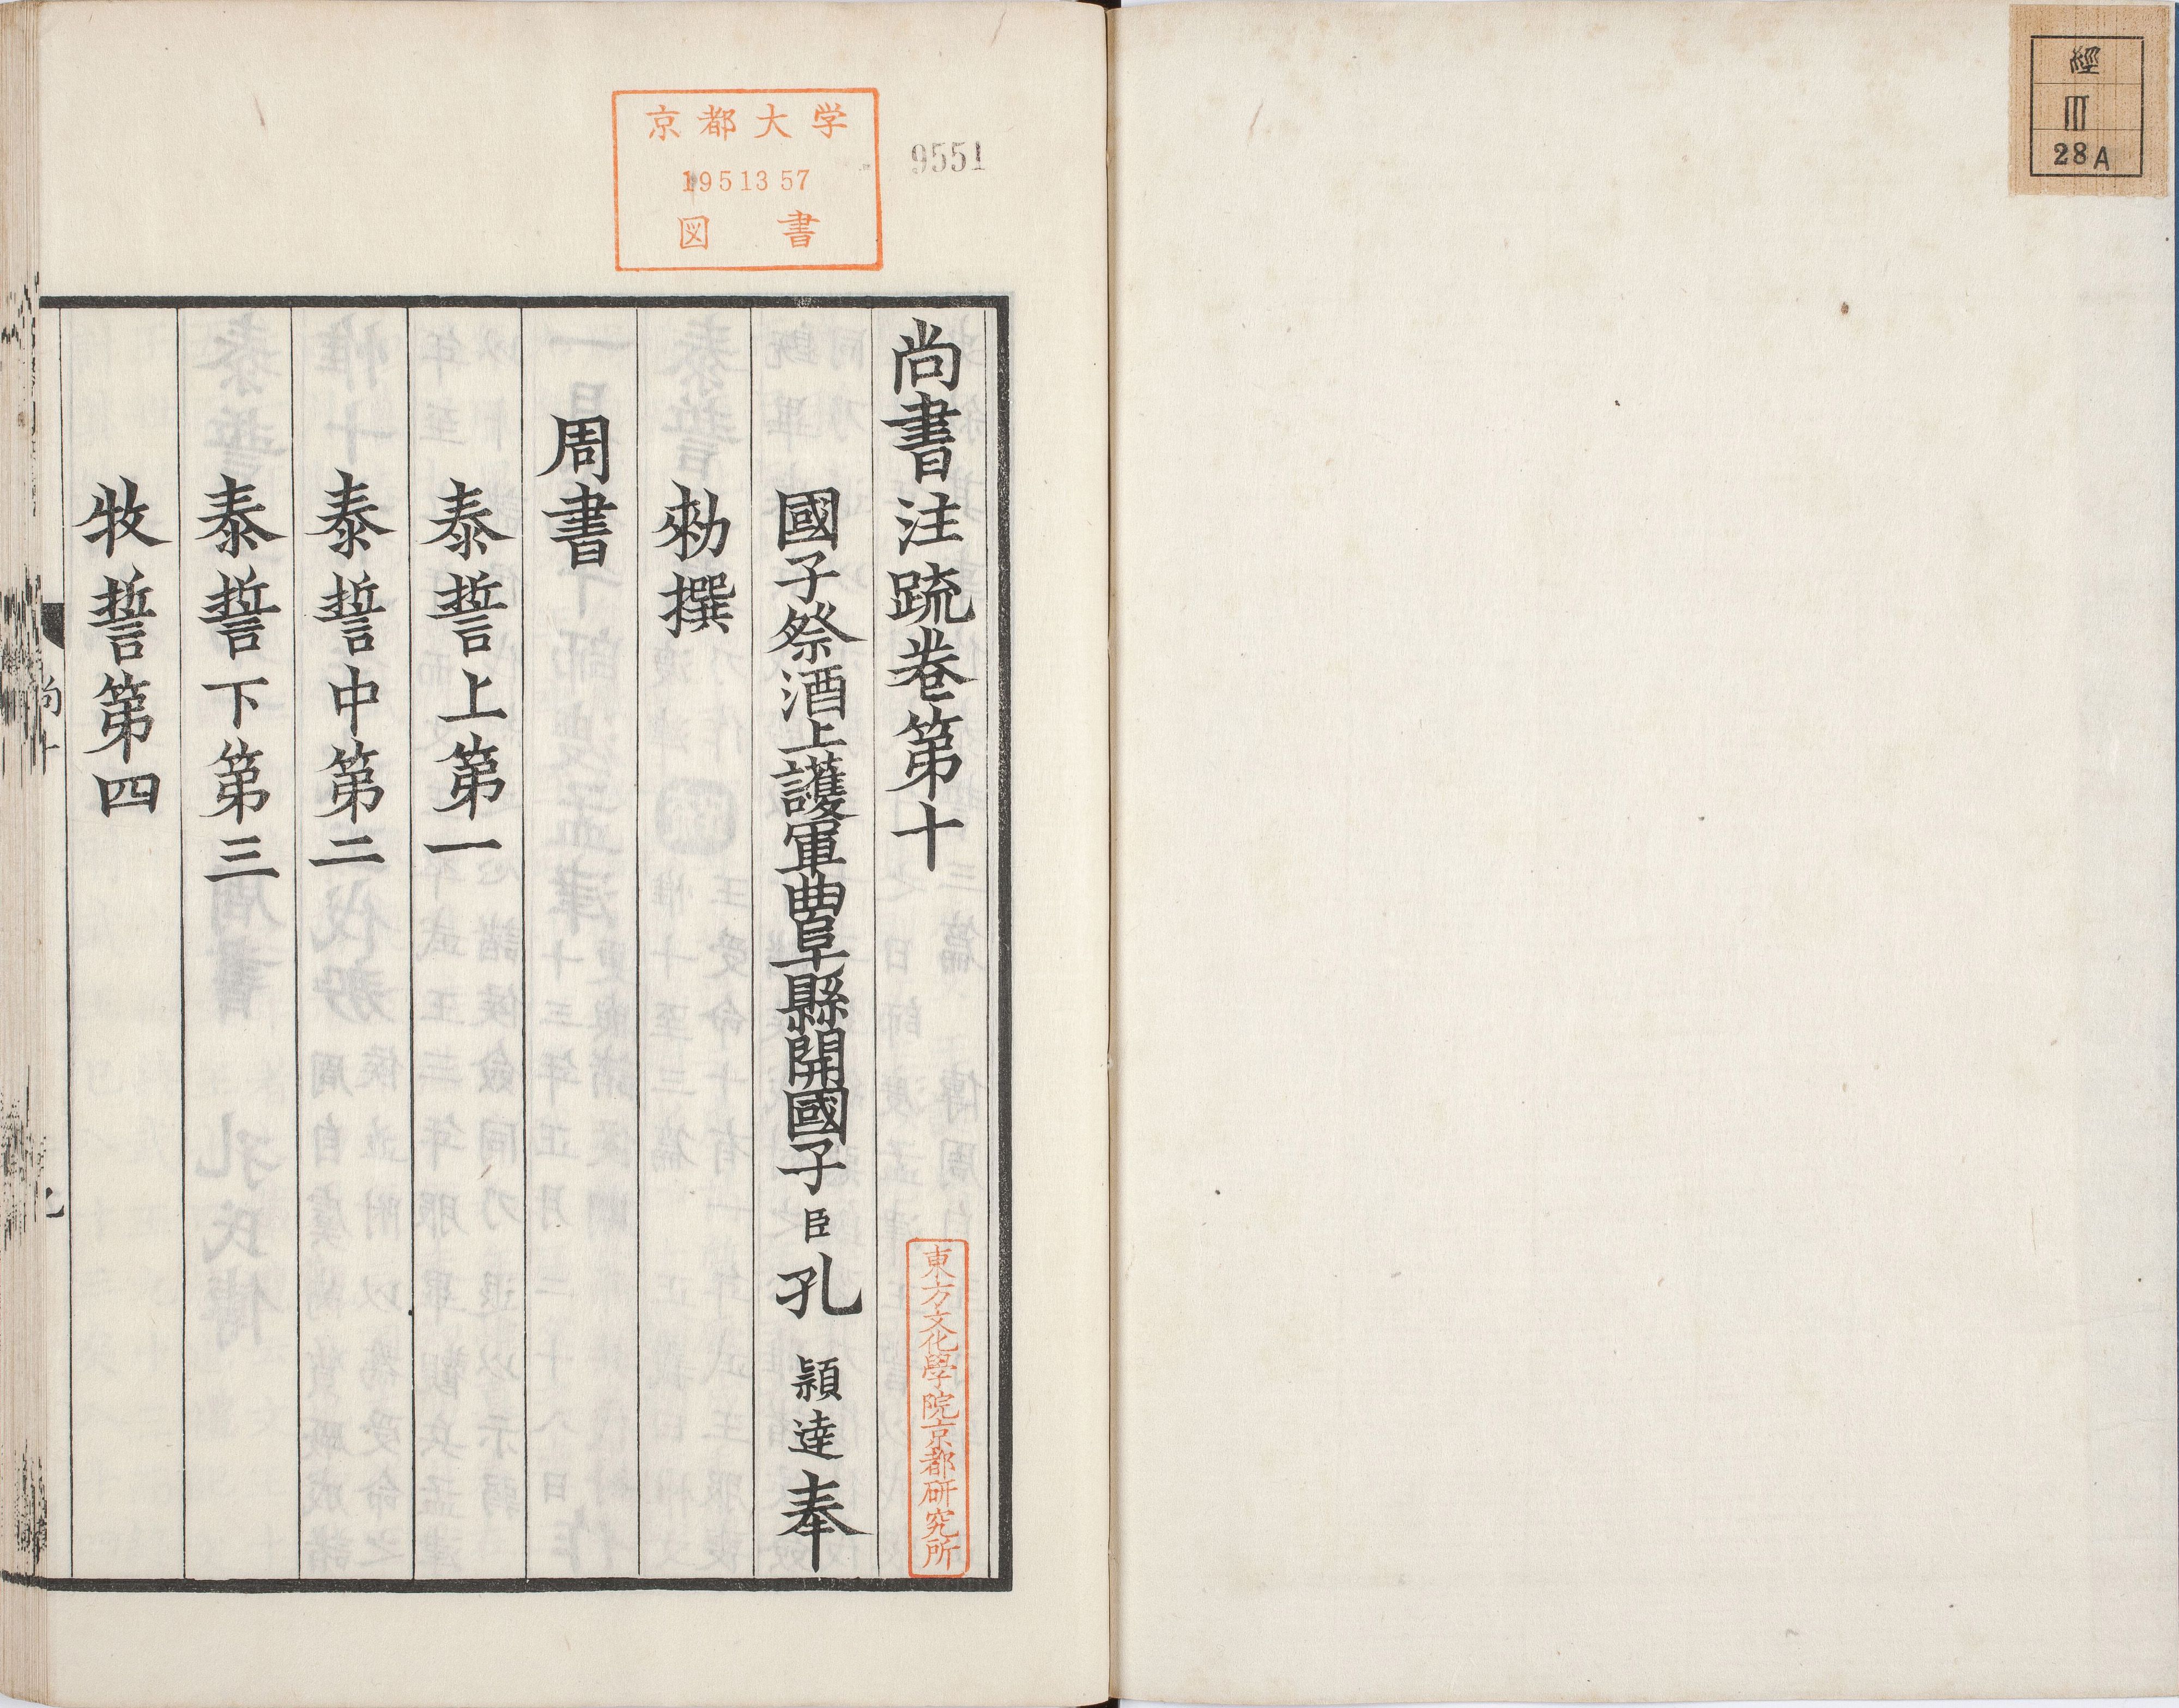 經
Ⅲ
28A
9551
京都大学
1951357
図書
尚書注疏卷第十
國子祭酒上護軍曲阜縣開國子臣孔穎達奉
勑撰
周書
泰誓上第一
泰誓中第二
泰誓下第三
牧誓第四
東方文化學院京都研究所